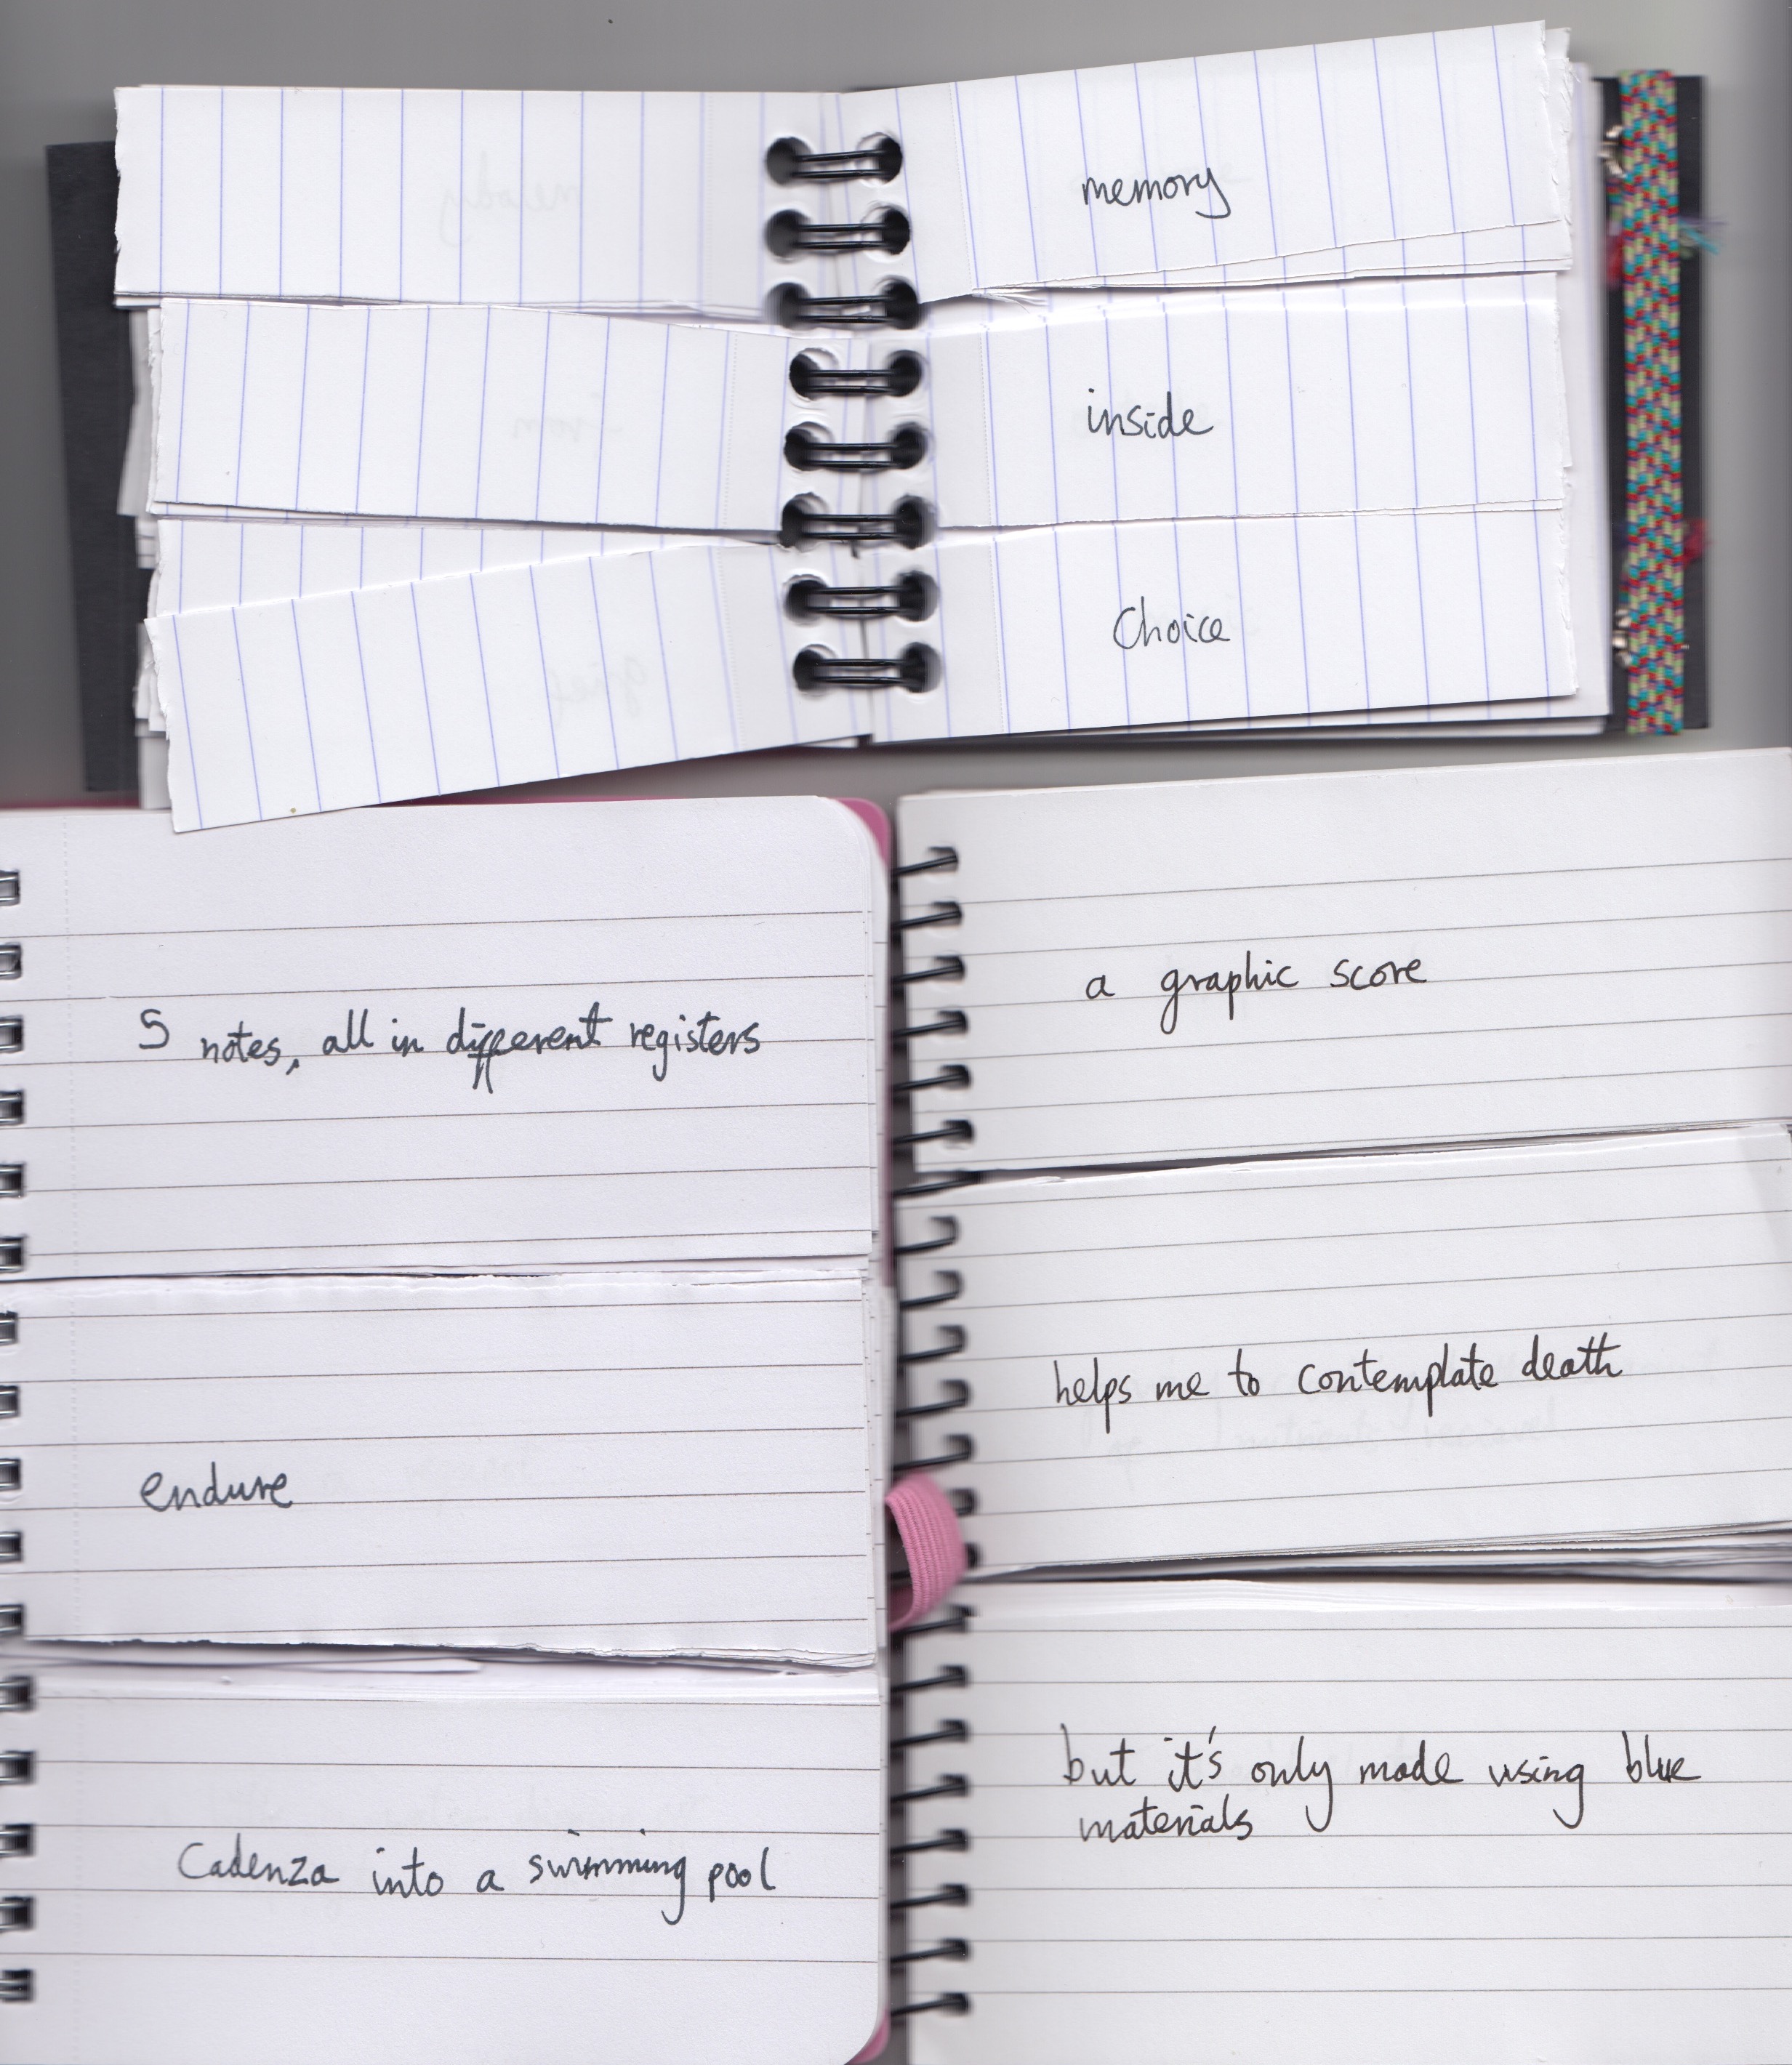 memory
inside
Choice
5 notes, all in different registers
endure
Cadenza into a swimming pool
a graphic score
helps me to contemplate death
but it's only made using blue
materials